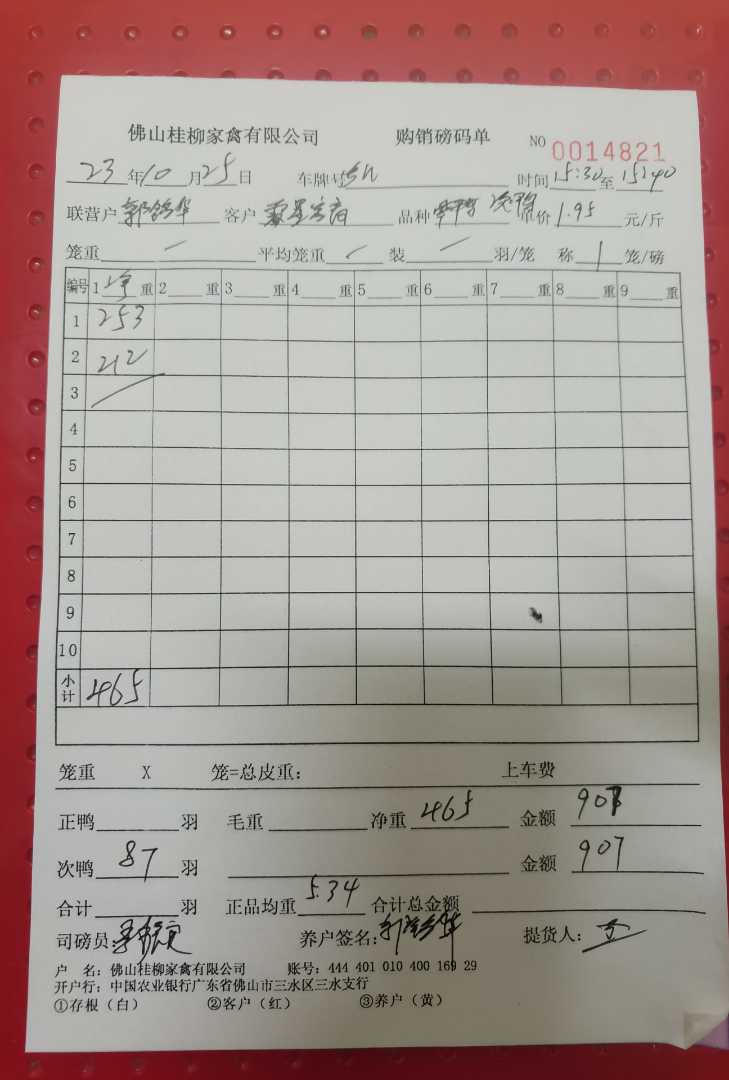 佛山桂柳家禽有限公司 购销磅码单 NO 0014821
23年10月25日 车牌号 时间15:30至15:40
联营户 客户 品种 单价1.95元/斤
笼重 — 平均笼重 — 装 — 羽/笼 称 1 笼/磅
编号 1 净 重 2 重 3 重 4 重 5 重 6 重 7 重 8 重 9 重
1 253
2 212
3
4
5
6
7
8
9
10
小计 465
笼重 X 笼=总皮重: 上车费
正鸭 羽 毛重 净重 465 金额 907
次鸭 87 羽 金额 907
合计 羽 正品均重 5.34 合计总金额
司磅员: 养户签名: 提货人:
户 名: 佛山桂柳家禽有限公司 账号: 444 401 010 400 169 29
开户行: 中国农业银行广东省佛山市三水区三水支行
①存根(白) ②客户(红) ③养户(黄)